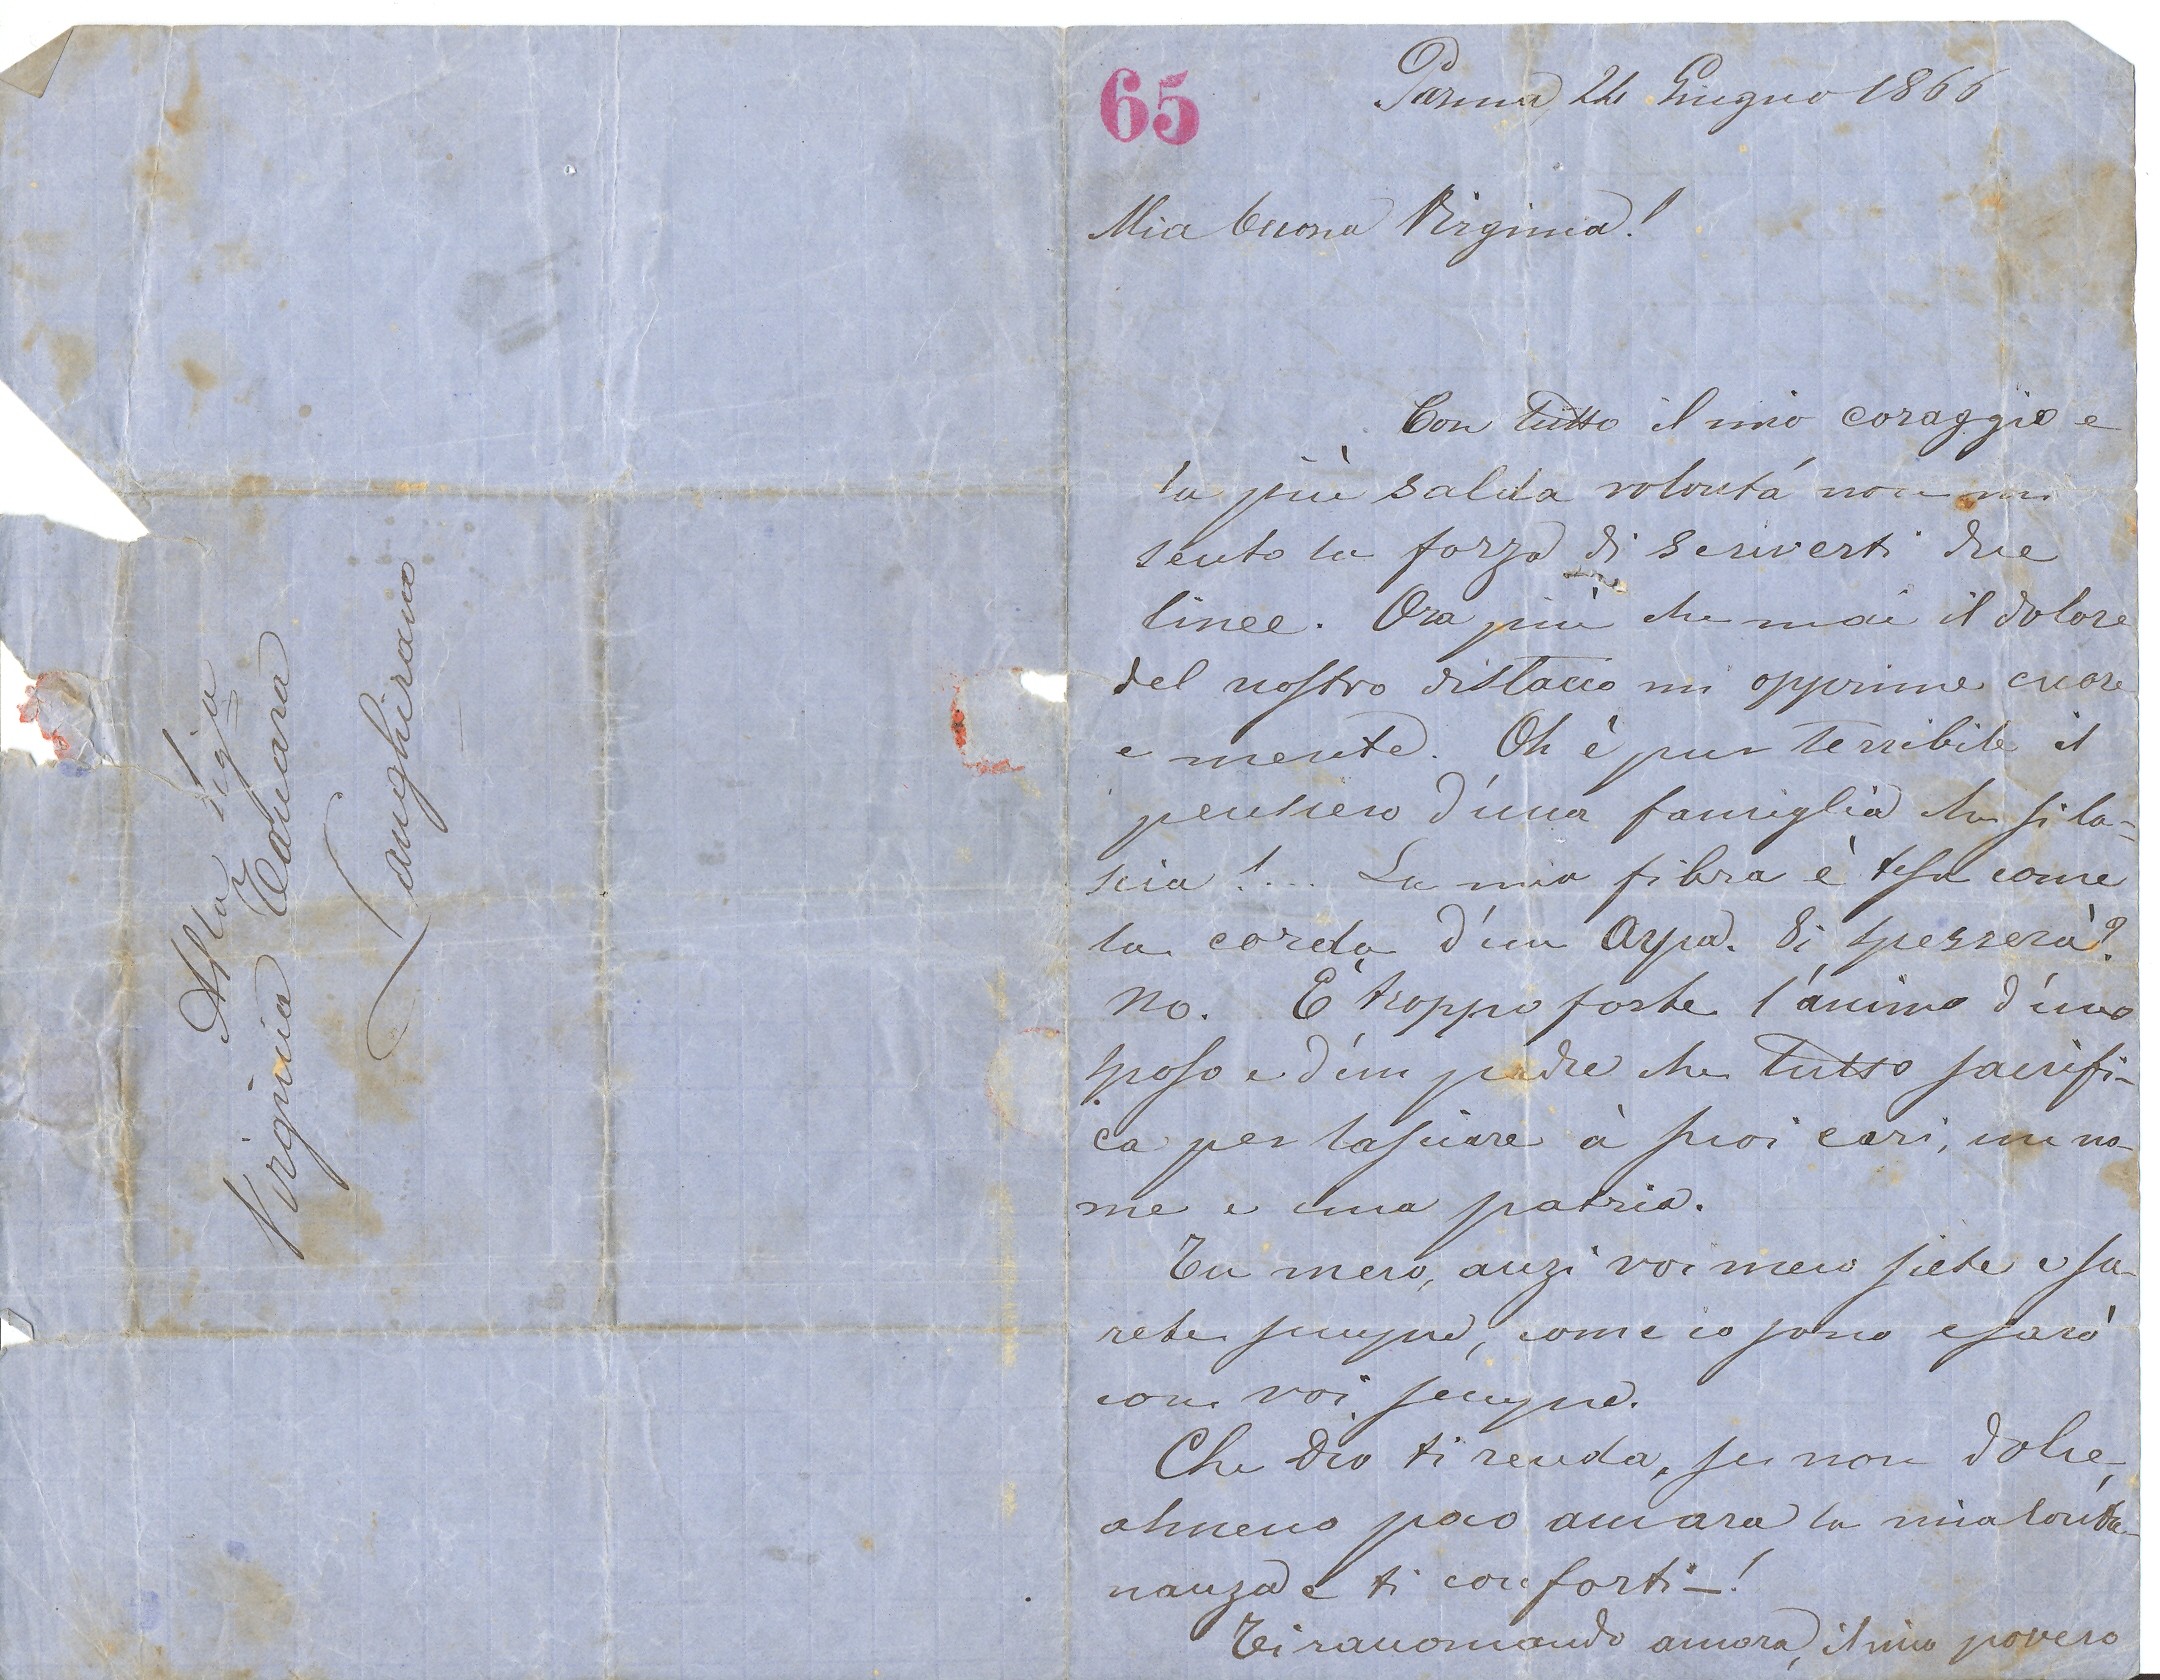 Alla Sig.a
Virginia
Langhirano
65
Parma 24 Giugno 1866
Mia buona Virginia!
Con tutto il mio coraggio e
la più salda volontá non mi
sento la forza di scriverti due
linee. Ora più che mai il dolore
del nostro distacco mi opprime cuore
e mente. Oh è pur terribile il
pensiero d'una famiglia che si la=
scia!... La mia fibra è tesa come
la corda d'un Arpa. Si spezzerà?
No. È troppo forte l'animo d'uno
sposo e d'un padre che tutto sacrifi-
ca per lasciare à suoi cari, un no-
me e una patria.
Tu meco, anzi voi meco siete e sa-
rete sempre, come io sono e sarò
con voi sempre.
Che Dio ti renda, se non dolce,
almeno poco amara la mia lonta-
nanza e ti conforti—!
Ti raccomando ancora, il mio povero